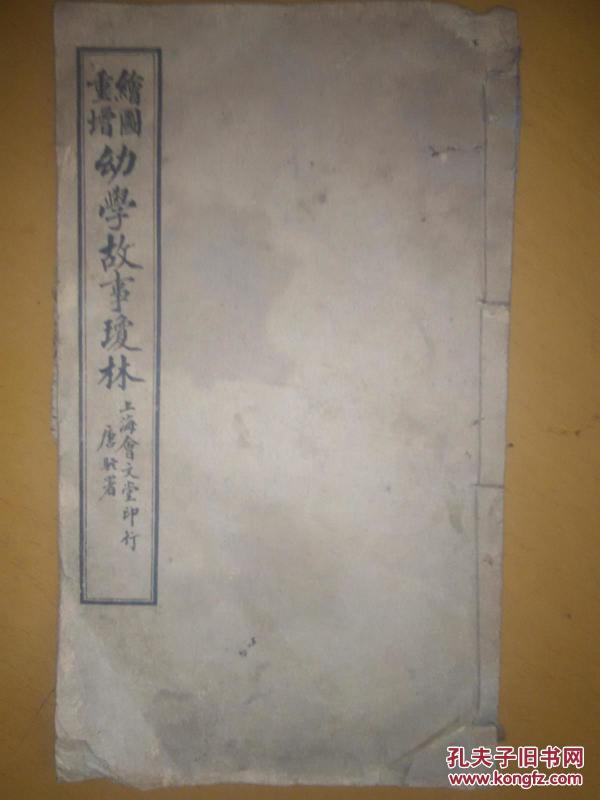 繪圖
重增
幼學故事瓊林
上海會文堂印行
唐駝署
孔夫子旧书网
www.kongfz.com